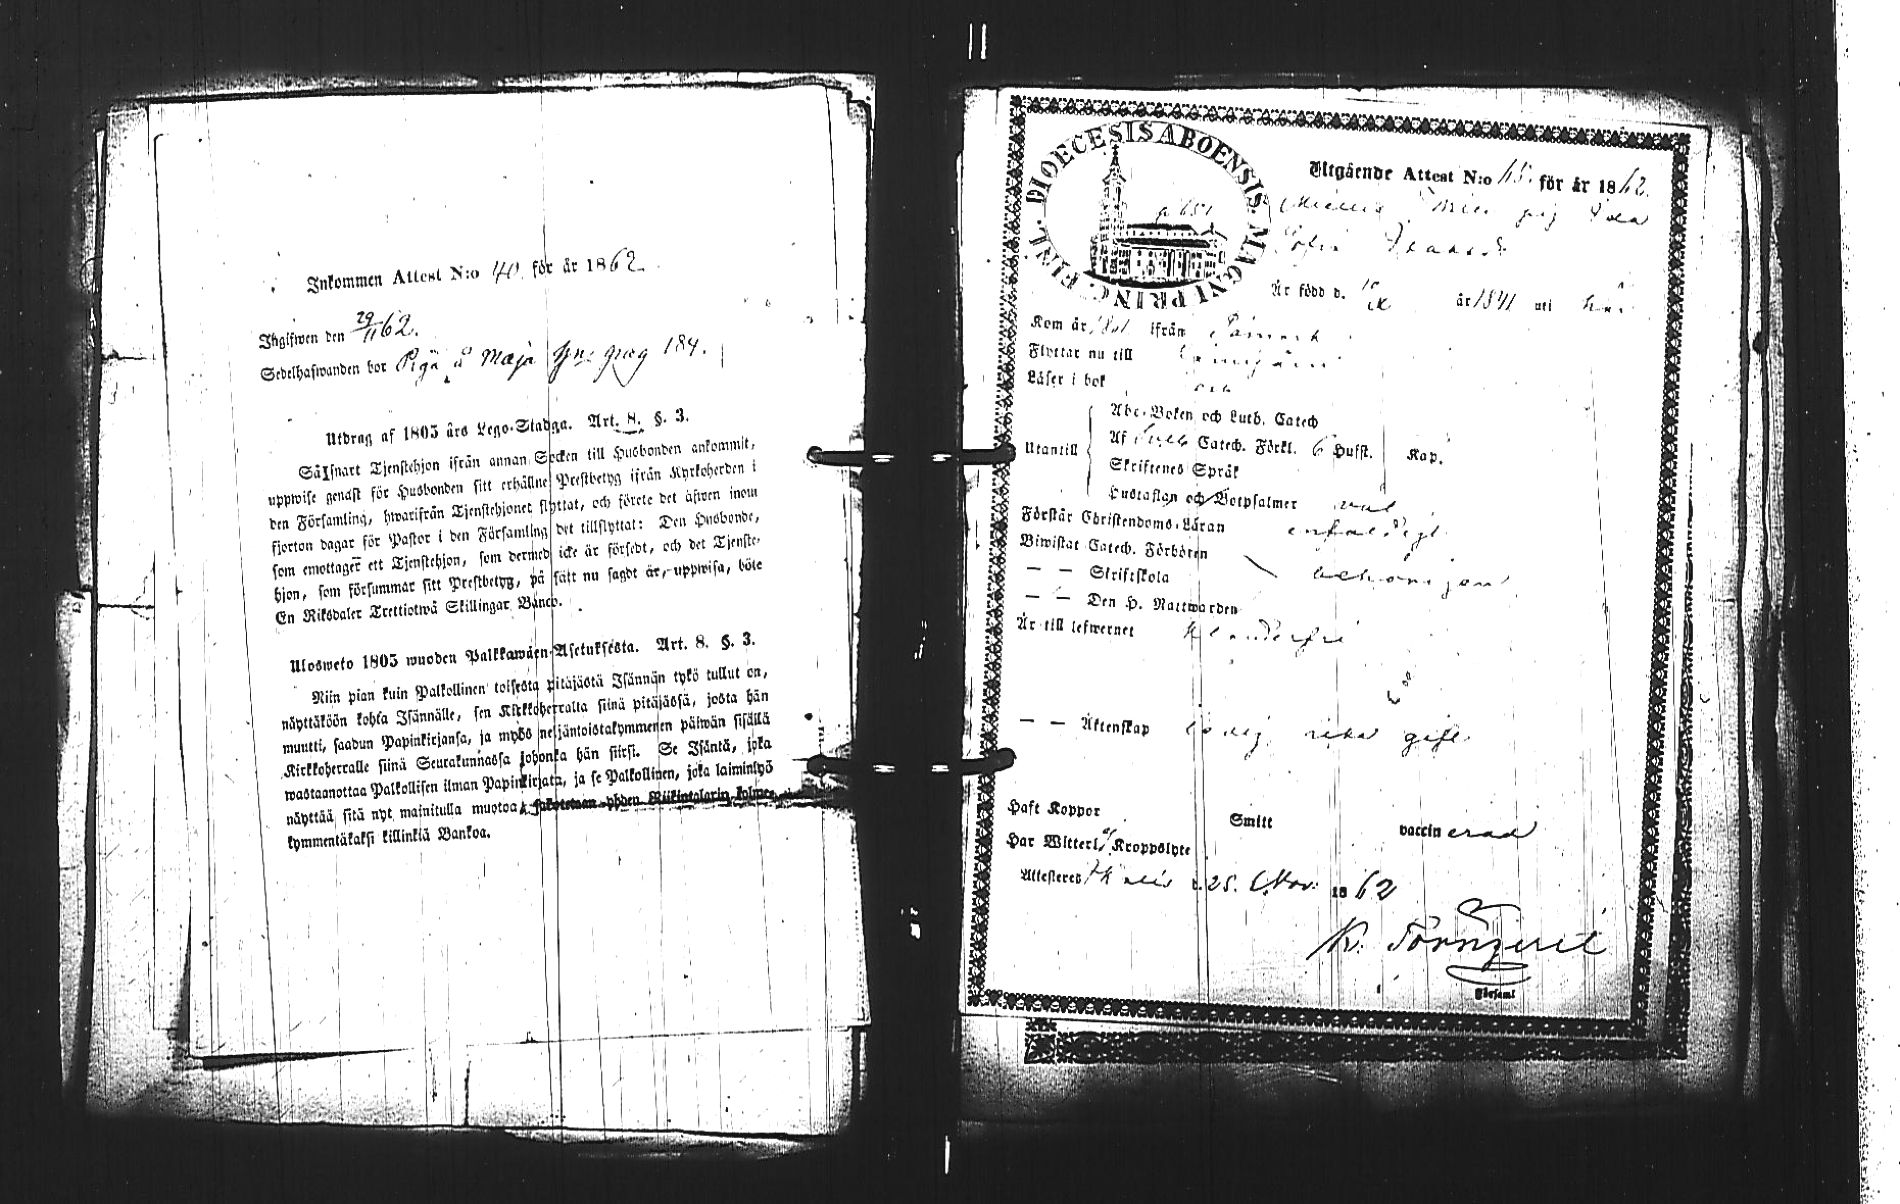 Inkommen Attest N:o 40. för år 1862.
Ihgifwen den 29/11 62.
Sedelhafwanden bor Piga å Maja pag 184.
Utdrag af 1805 års Lego-Stadga. Art. 8. §. 3.
Såsnart Tjenstehjon ifrån annan Socken till Husbonden ankommit,
uppwise genast för Husbonden sitt erhållne Prestbetyg ifrån Kyrkoherden i
den Församling, hwarifrån Tjenstehjonet flyttat, och förete det äfwen inom
fjorton dagar för Pastor i den Församling det tillflyttat: Den Husbonde,
som emottager ett Tjenstehjon, som dermed icke är försedt, och det Tjenste-
hjon, som försummar sitt Prestbetyg, på sätt nu sagdt är, uppwisa, böte
En Riksdaler Trettiotwå Skillingar Banco.
Ulosweto 1805 wuoden Palkkawäen-Asetuksesta. Art. 8. §. 3.
Niin pian kuin Palkollinen toisesta pitäjästä Isännän tykö tullut on,
näyttäköön kohta Isännälle, sen Kirkkoherralta siinä pitäjässä, josta hän
muutti, saadun Papinkirjansa, ja myös neljäntoistakymmenen päiwän sisällä
Kirkkoherralle siinä Seurakunnassa johonka hän siirsi. Se Isäntä, joka
wastaanottaa Palkollisen ilman Papinkirjata, ja se Palkollinen, joka laiminlyö
näyttää sitä nyt mainitulla muotoa, sakotetaan yhden Riikintalarin kolmen-
kymmentäkaksi killinkiä Bankoa.
DIOECESIS ABOENSIS. MAGNI PRINC. FINL.
p 651
Utgående Attest N:o 65. för år 1862.
pig
Sofia
Är född d. år 1841 uti här
Kom år ifrån
Flyttar nu till
Läser i bok
Abc-Boken och Luth. Catech
Utantill Af Catech. Förkl. 6 Hufst. Kap.
Skriftenes Språk
Hustaflan och Botpsalmer väl
Förstår Christendoms-Läran enfaldigt
Biwistat Catech. Förhören
— — Skriftskola behörigen
— — Den H. Nattwarden
Är till lefwernet klanderfri
— — Äktenskap ledig gift
Haft Koppor Smitt vaccinerad
Har Witterl. Kroppslyte
Attesteres d. 25. Nov. 1862
K. Törnqvist